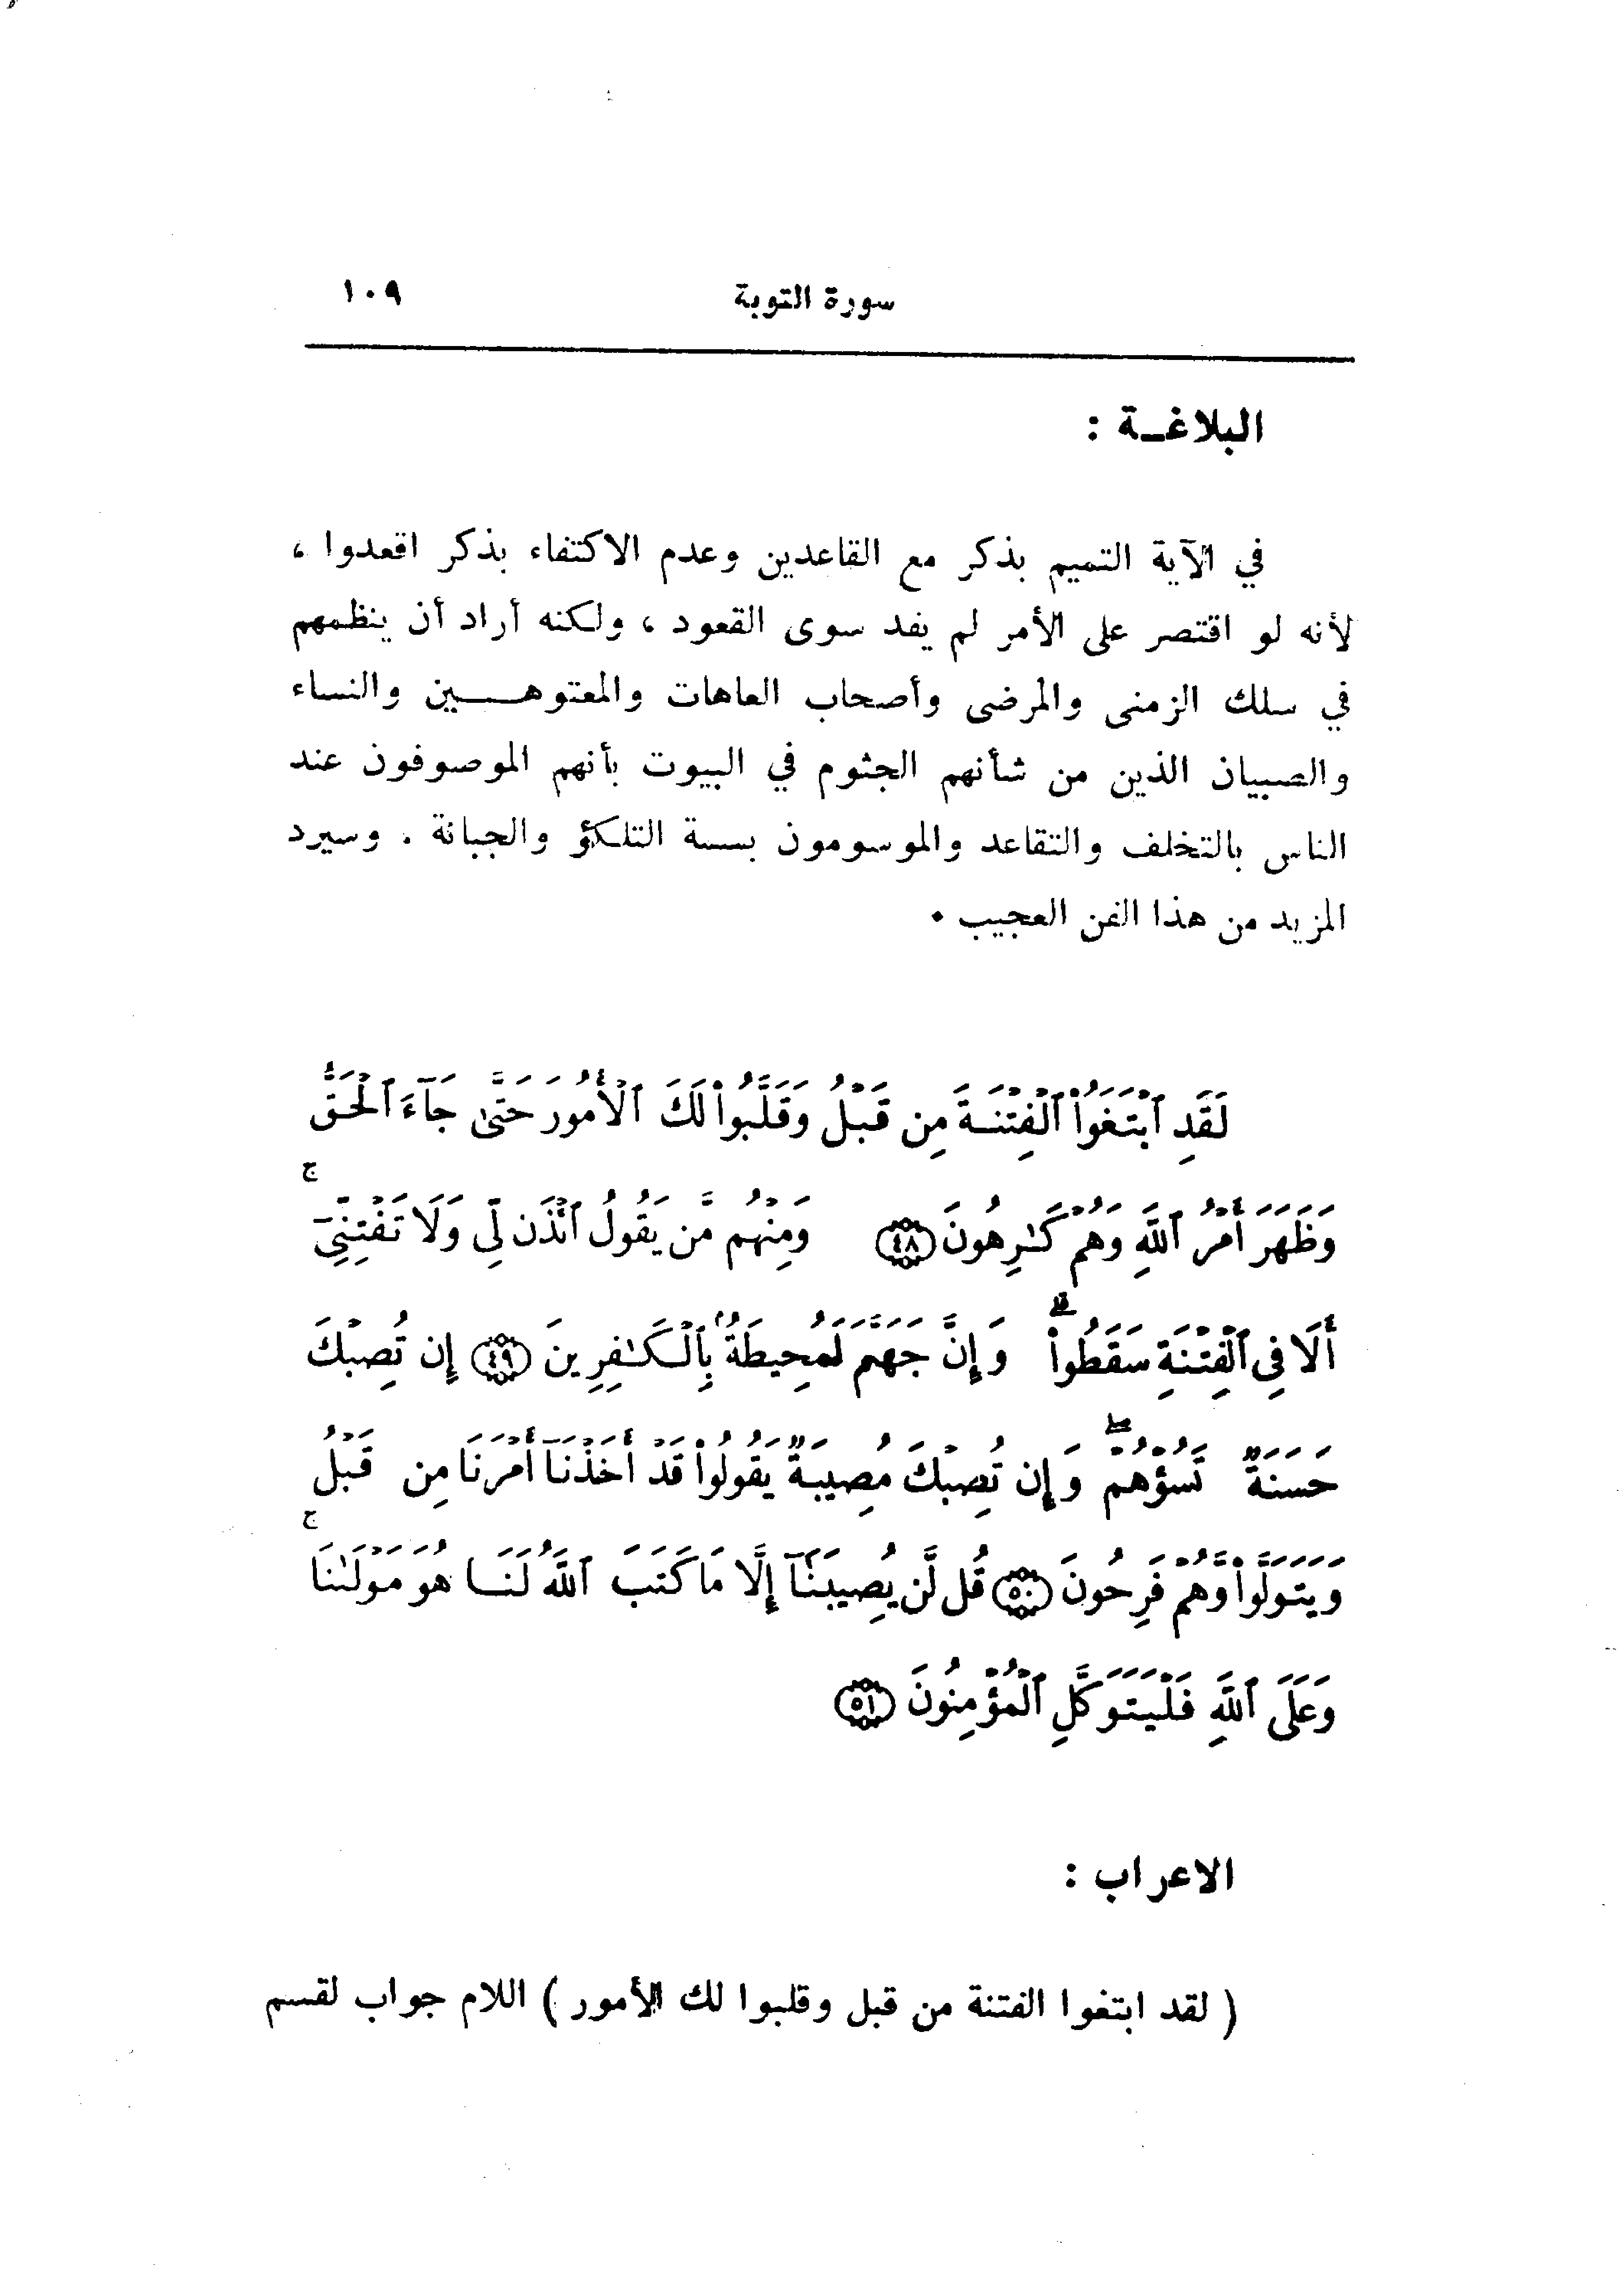 سورة التوبة ١٠٩
البلاغــة :
في الآية التتميم بذكر مع القاعدين وعدم الاكتفاء بذكر اقعدوا ،
لأنه لو اقتصر على الأمر لم يفد سوى القعود ، ولكنه أراد أن ينظمهم
في سلك الزمنى والمرضى وأصحاب العاهات والمعتوهــــين والنساء
والصبيان الذين من شأنهم الجثوم في البيوت بأنهم الموصوفون عند
الناس بالتخلف والتقاعد والموسومون بسمة التلكؤ والجبانة . وسيرد
المزيد من هذا الفن العجيب .
لَقَدِ ٱبْتَغَوُا۟ ٱلْفِتْنَةَ مِن قَبْلُ وَقَلَّبُوا۟ لَكَ ٱلْأُمُورَ حَتَّىٰ جَآءَ ٱلْحَقُّ
وَظَهَرَ أَمْرُ ٱللَّهِ وَهُمْ كَـٰرِهُونَ ﴿٤٨﴾ وَمِنْهُم مَّن يَقُولُ ٱئْذَن لِّى وَلَا تَفْتِنِّىٓ ۚ
أَلَا فِى ٱلْفِتْنَةِ سَقَطُوا۟ ۗ وَإِنَّ جَهَنَّمَ لَمُحِيطَةٌۢ بِٱلْكَـٰفِرِينَ ﴿٤٩﴾ إِن تُصِبْكَ
حَسَنَةٌ تَسُؤْهُمْ ۖ وَإِن تُصِبْكَ مُصِيبَةٌ يَقُولُوا۟ قَدْ أَخَذْنَآ أَمْرَنَا مِن قَبْلُ
وَيَتَوَلَّوا۟ وَّهُمْ فَرِحُونَ ﴿٥٠﴾ قُل لَّن يُصِيبَنَآ إِلَّا مَا كَتَبَ ٱللَّهُ لَنَا هُوَ مَوْلَىٰنَا ۚ
وَعَلَى ٱللَّهِ فَلْيَتَوَكَّلِ ٱلْمُؤْمِنُونَ ﴿٥١﴾
الاعراب :
( لقد ابتغوا الفتنة من قبل وقلبوا لك الأمور ) اللام جواب لقسم